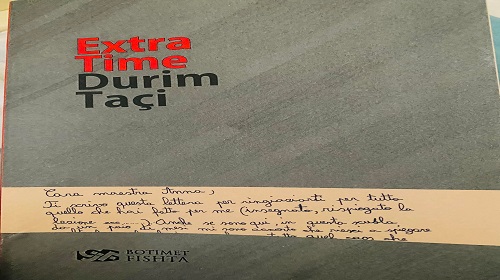 Extra
Time
Durim
Taçi
Cara maestra Anna,
Ti scrivo questa lettera per ringraziarti per tutto
quello che hai fatto per me (insegnato, rispiegato la
lezione ecc.....) Anche se sono qui in questa scuola
da un paio di mesi mi sono accorto che riesci a spiegare
tutto quel caos che
BOTIMET
FISHTA